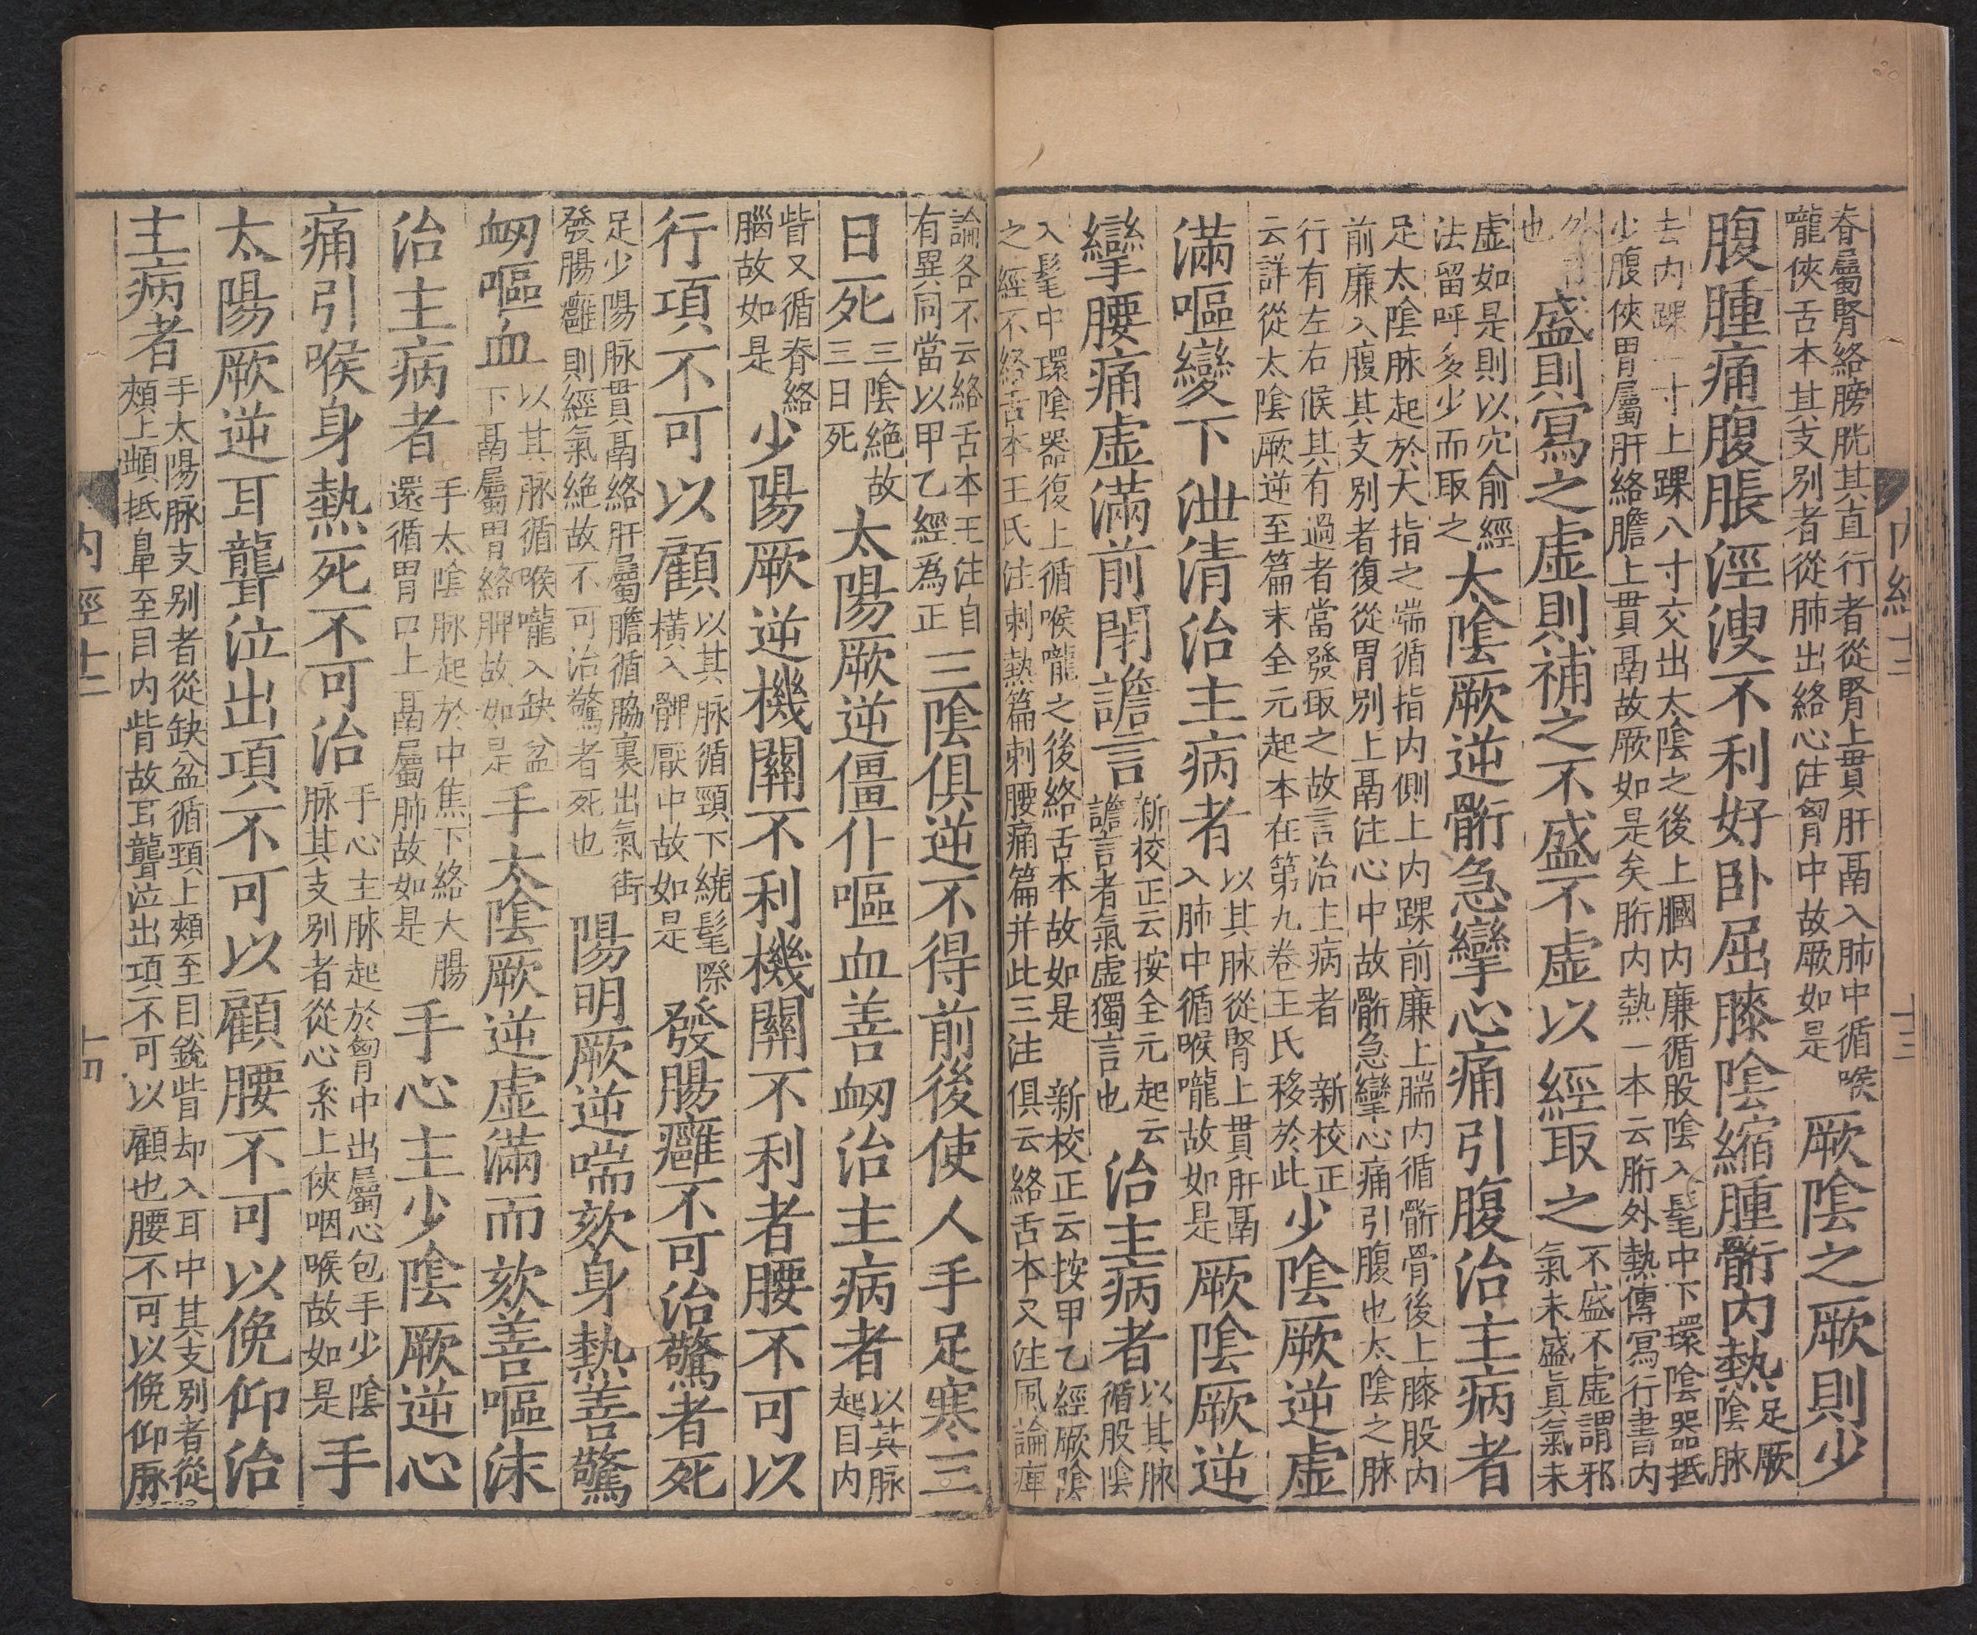 脊屬腎絡膀胱其直行者從腎上貫肝鬲入肺中循喉
嚨俠舌本其支別者從肺出絡心注胷中故厥如是
厥隂之厥則少
腹腫痛腹脹涇溲不利好卧屈膝隂縮腫䯒內熱
足厥
隂脉
去內踝一寸上踝八寸交出太隂之後上膕內廉循股隂入髦中下環隂器抵
少腹俠胃屬肝絡膽上貫鬲故厥如是矣胻內熱一本云胻外熱傳寫行書內
外
也
盛則寫之虛則補之不盛不虛以經取之
不盛不虛謂邪
氣未盛眞氣未
虛如是則以穴俞經
法留呼多少而取之
太隂厥逆䯒急攣心痛引腹治主病者
足太隂脉起於大指之端循指內側上內踝前廉上腨內循䯒骨後上膝股內
前廉入腹其支別者復從胃別上鬲注心中故䯒急攣心痛引腹也太隂之脉
行有左右候其有過者當發取之故言治主病者 新校正
云詳從太隂厥逆至篇末全元起本在第九卷王氏移於此
少隂厥逆虛
滿嘔變下泄清治主病者
以其脉從腎上貫肝鬲
入肺中循喉嚨故如是
厥隂厥逆
攣腰痛虛滿前閉譫言
新校正云按全元起云
譫言者氣虛獨言也
治主病者
以其脉
循股隂
入髦中環隂器復上循喉嚨之後絡舌本故如是 新校正云按甲乙經厥隂
之經不絡舌本王氏注刺熱篇刺腰痛篇并此三注俱云絡舌本又注風論痺
內經十二
十三
論各不云絡舌本王注自
有異同當以甲乙經爲正
三隂俱逆不得前後使人手足寒三
日死
三隂絶故
三日死
太陽厥逆僵仆嘔血善衂治主病者
以其脉
起目內
眥又循脊絡
腦故如是
少陽厥逆機關不利機關不利者腰不可以
行項不可以顧
以其脉循頸下繞髦際
橫入髀厭中故如是
發腸癰不可治驚者死
足少陽脉貫鬲絡肝屬膽循脇裏出氣街
發腸癰則經氣絶故不可治驚者死也
陽明厥逆喘欬身熱善驚
衂嘔血
以其脉循喉嚨入缺盆
下鬲屬胃絡脾故如是
手太隂厥逆虛滿而欬善嘔沫
治主病者
手太隂脉起於中焦下絡大腸
還循胃口上鬲屬肺故如是
手心主少隂厥逆心
痛引喉身熱死不可治
手心主脉起於胷中出屬心包手少隂
脉其支別者從心系上俠咽喉故如是
手
太陽厥逆耳聾泣出項不可以顧腰不可以俛仰治
主病者
手太陽脉支別者從缺盆循頸上頰至目銳眥却入耳中其支別者從
頰上䪼抵鼻至目內眥故耳聾泣出項不可以顧也腰不可以俛仰脉
內經十二
十四